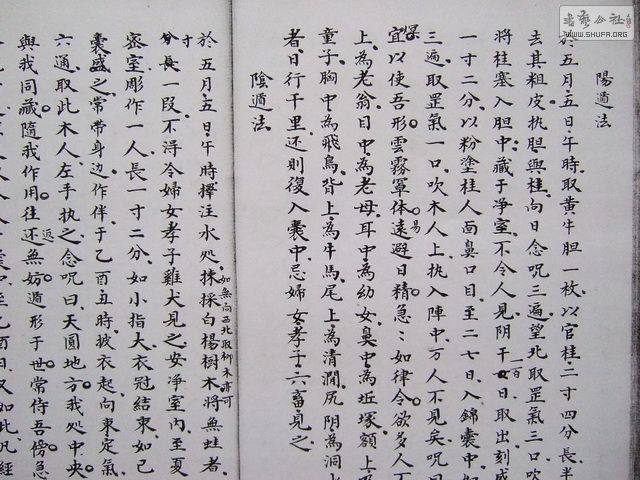 陽遁法
於五月五日午時取黄牛胆一枚以官桂二寸四分長半
去其粗皮执胆與桂向日念呪三遍望北取罡氣三口吹
将桂塞入胆中藏于净室不令人見阴干一百日取出刻成
一寸二分以粉塗桂人面鼻口目至二七日入錦囊中
三遍取罡氣一口吹木人上执入陣中万人不見矣呪曰
宜以使吾形雲霧罩体遠避日精急：如律令欲多人不
上為老翁目中為老母耳中為幼女鼻中為坵塚額上
童子胸中為飛鳥背上為牛馬尾上為清澗尻阴為洞
者日行千里还則復入囊中忌婦女孝子六畜見之
陰遁法
於五月五日午時擇注水处採白楊樹木将無蛀者
如無向西北取柳木亦可
寸
分長一段不淂令婦女孝子雞犬見之安净室内至夏
密室彫作一人長一寸二分如小指大衣冠結束如已
囊盛之常带身边作伴于乙酉丑時披衣起向東定氣
六通取此木人左手执之念呪曰天圓地方我処中央
與我同藏隨我作用往还無妨遁形于世常侍吾傍急